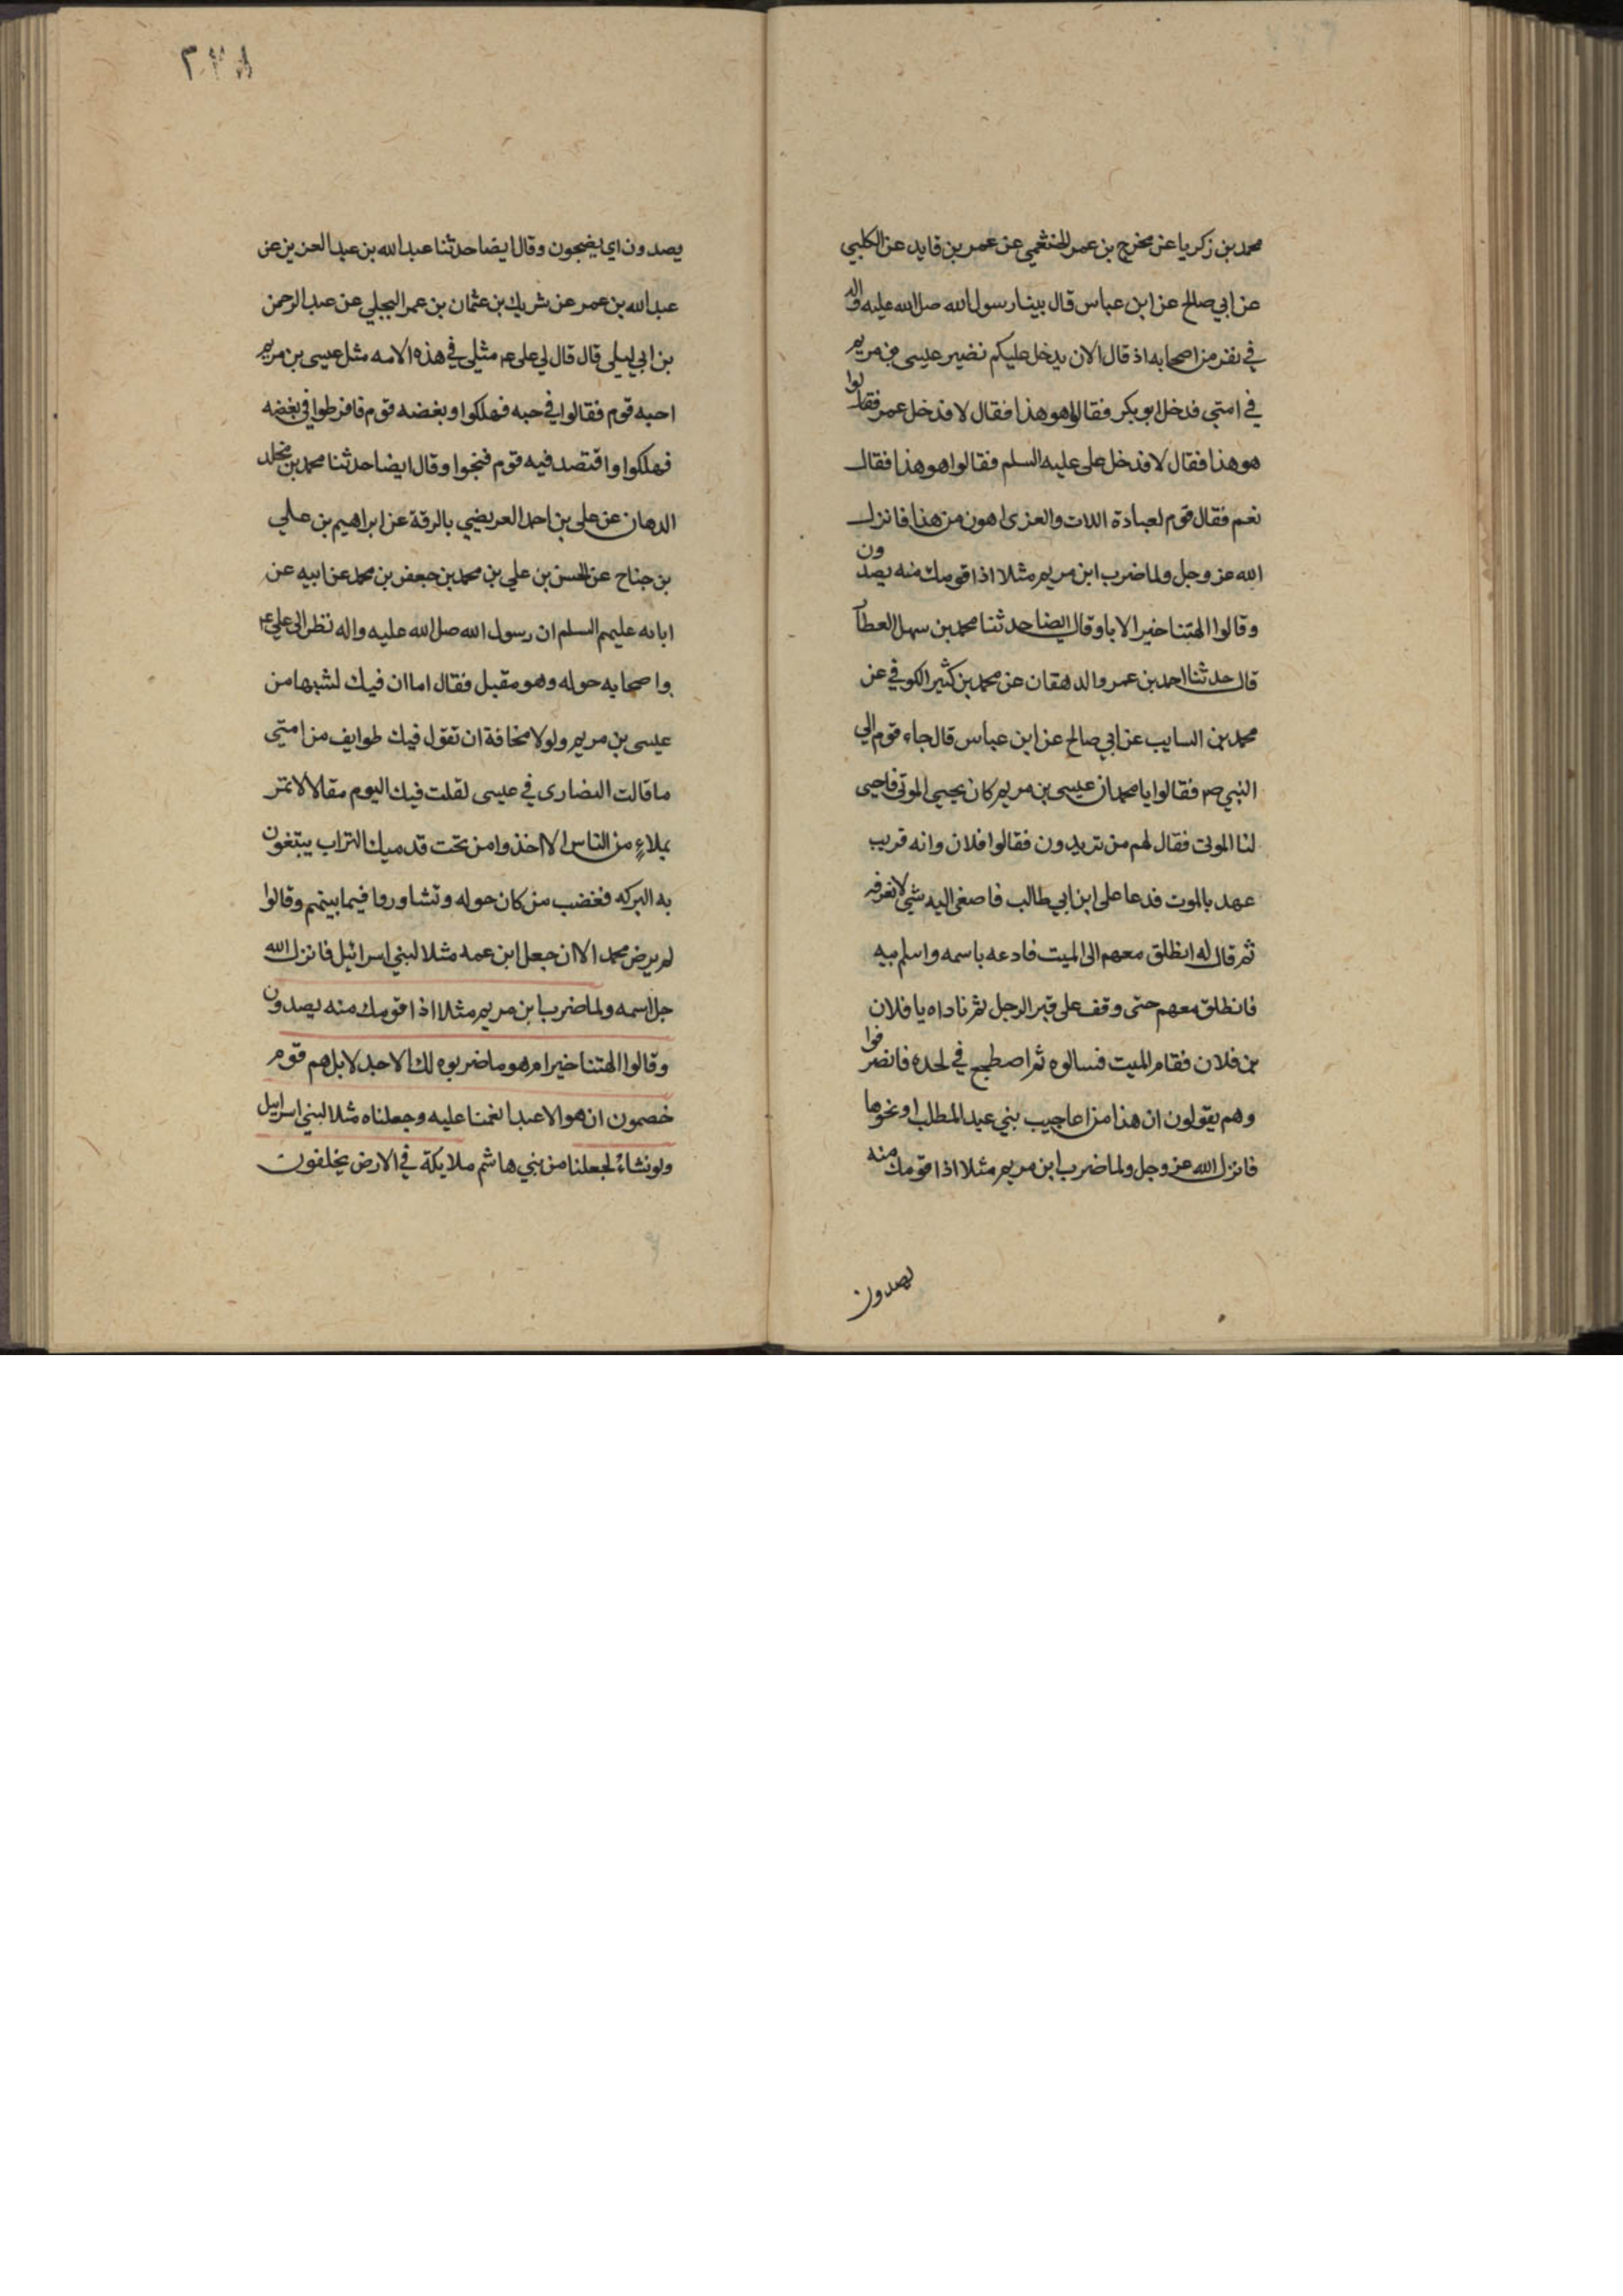 محمد بن زكريا عن مخرج بن عمر الخثعمي عن عمر بن قايد عن الكلبي
عن ابي صالح عن ابن عباس قال بينا رسول الله صلى الله عليه واله
في نفر من اصحابه اذ قال الان يدخل عليكم نضير عيسى بن مريم
في امتي فدخل ابو بكر فقالوا هو هذا فقال لا فدخل عمر فقالوا
هو هذا فقال لا فدخل على عليه السلم فقالوا هو هذا فقال
نعم فقال قوم لعبادة اللات والعزى اهون من هذا فانزل
الله عز وجل ولما ضرب ابن مريم مثلا اذا قومك منه يصدون
وقالوا الهتنا خير الا با وقال ايضا حدثنا محمد بن سهل العطا
قال حدثنا احمد بن عمر والدهقان عن محمد بن كثير الكوفي عن
محمد بن السايب عن ابي صالح عن ابن عباس قال جاء قوم الي
النبي صم فقالوا يا محمد ان عيسى بن مريم كان يحيي الموتى فاحيى
لنا الموتى فقال لهم من تريدون فقالوا فلان وانه قريب
عهد بالموت فدعا على ابن ابي طالب فاصغى اليه شي لا نعرفه
ثم قال له انطلق معهم الى الميت فادعه باسمه واسم بيه
فانطلق معهم حتى وقف على قبر الرجل ثم ناداه يا فلان
بن فلان فقام الميت فسالوه ثم اصطجع في لحده فانصرفوا
وهم يقولون ان هذا من اعاجيب بني عبد المطلب او نحوها
فانزل الله عز وجل ولما ضرب ابن مريم مثلا اذا قومك منه
يصدون
٢٣٨
يصدون اي يضجون وقال ايضا حدثنا عبد الله بن عبد العزيز عن
عبد الله بن عمر عن شريك بن عثمان بن عمر البجلي عن عبد الرحمن
بن ابي ليلى قال قال لي على عم مثلي في هذه الامه مثل عيسى بن مريم
احبه قوم فقالوا في حبه فهلكوا وبغضه قوم فافرطوا في بغضه
فهلكوا واقتصد فيه قوم فنجوا وقال ايضا حدثنا محمد بن مخلد
الدهان عن على بن احمد العريضي بالرقة عن ابراهيم بن علي
بن جناح عن الحسن بن علي بن محمد بن جعفر بن محمد عن ابيه عن
ابائه عليهم السلم ان رسول الله صلى الله عليه واله نظر الى علي عم
واصحابه حوله وهو مقبل فقال اما ان فيك لشبها من
عيسى بن مريم ولولا مخافة ان تقول فيك طوايف من امتي
ما قالت النصارى في عيسى لقلت فيك اليوم مقالا لا تمر
بملاءٍ من الناس الا اخذوا من تحت قدميك التراب يبتغون
به البركه فغضب من كان حوله وتشاوروا فيما بينهم وقالوا
لم يرض محمد الا ان جعل ابن عمه مثلا لبني اسرائيل فانزل الله
جل اسمه ولما ضرب ابن مريم مثلا اذا قومك منه يصدون
وقالوا الهتنا خير ام هو ما ضربوه لك الا جدلا بل هم قوم
خصمون ان هو الا عبدا نغمنا عليه وجعلناه مثلا لبني اسرايل
ولو نشاء لجعلنا من بني هاشم ملايكة في الارض يخلفون